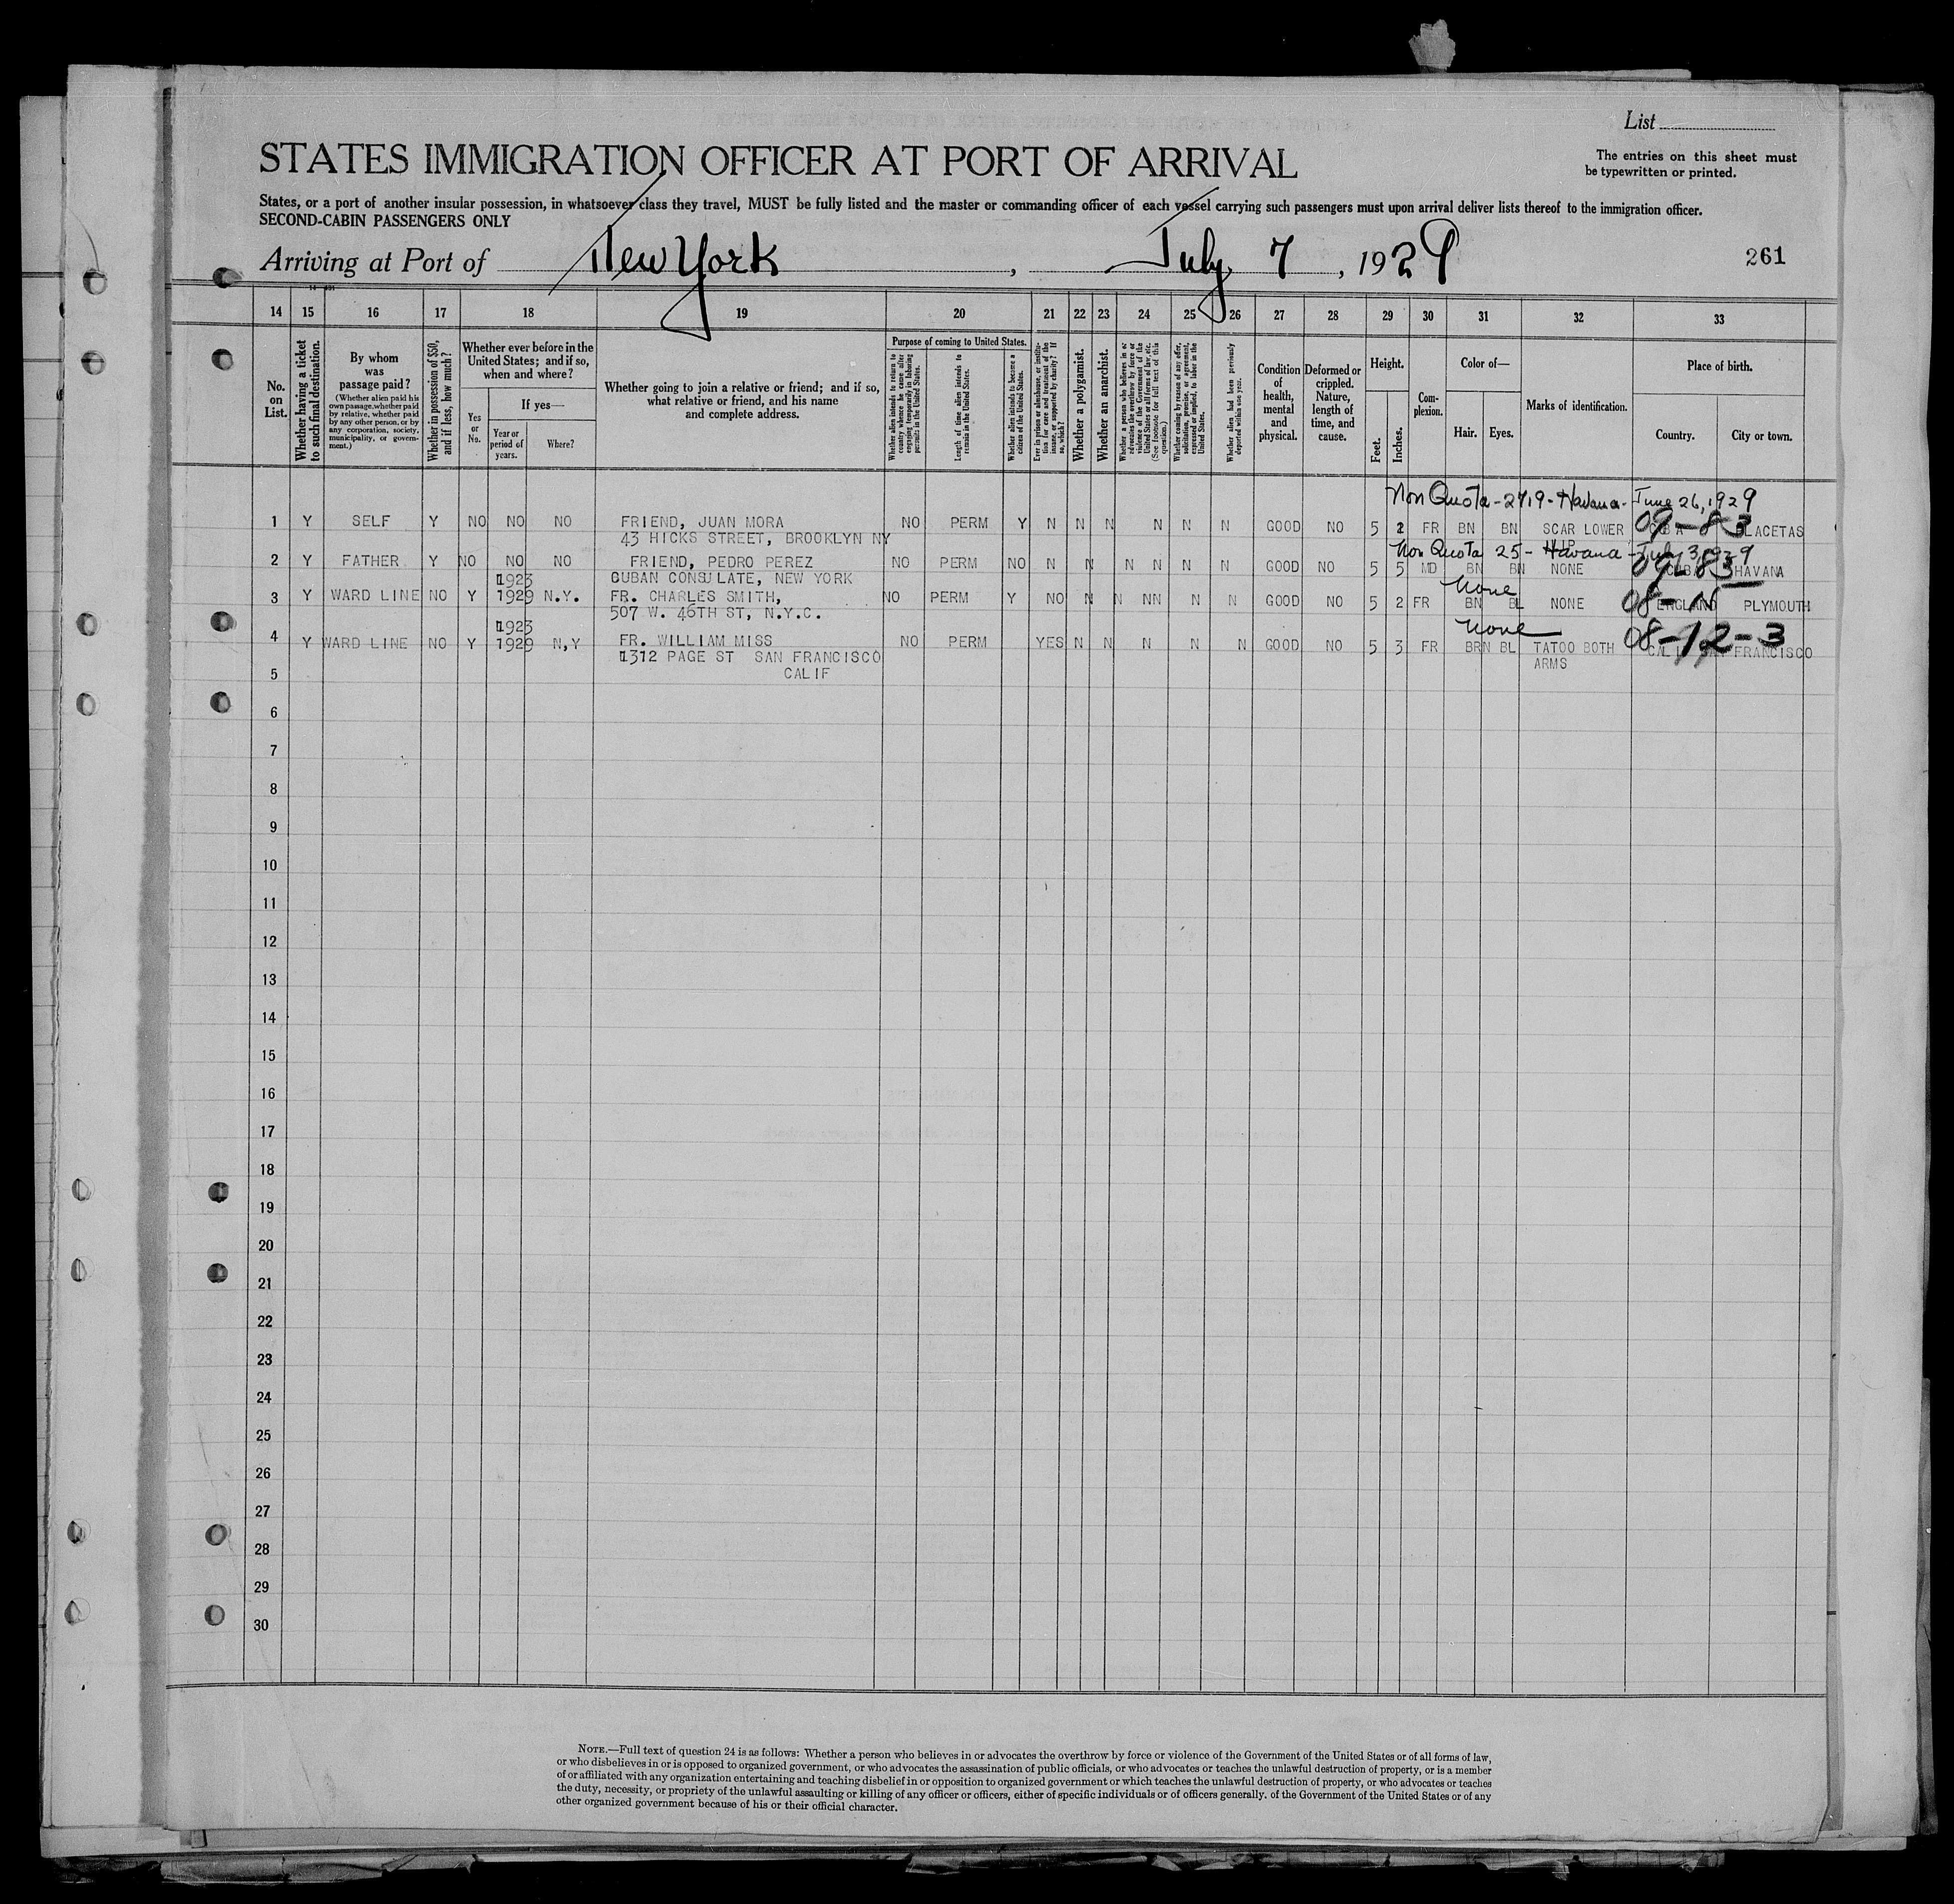 List
STATES IMMIGRATION OFFICER AT PORT OF ARRIVAL
The entries on this sheet must
be typewritten or printed.
States, or a port of another insular possession, in whatsoever class they travel, MUST be fully listed and the master or commanding officer of each vessel carrying such passengers must upon arrival deliver lists thereof to the immigration officer.
SECOND-CABIN PASSENGERS ONLY
Arriving at Port of New York, July 7, 1929
261
14 15 16 17 18 19 20 21 22 23 24 25 26 27 28 29 30 31 32 33
No. on List.
Whether having a ticket to such final destination.
By whom was passage paid?
(Whether alien paid his own passage, whether paid by relative, whether paid by any other person, or by any corporation, society, municipality, or government.)
Whether in possession of $50, and if less, how much?
Whether ever before in the United States; and if so, when and where?
Yes or No.
If yes—
Year or period of years.
Where?
Whether going to join a relative or friend; and if so, what relative or friend, and his name and complete address.
Purpose of coming to United States.
Whether alien intends to return to country whence he came after engaging temporarily in laboring pursuits in the United States.
Length of time alien intends to remain in the United States.
Whether alien intends to become a citizen of the United States.
Ever in prison or almshouse, or institution for care and treatment of the insane, or supported by charity? If so, which?
Whether a polygamist.
Whether an anarchist.
Whether a person who believes in or advocates the overthrow by force or violence of the Government of the United States or all forms of law, etc. (See footnote for full text of this question.)
Whether coming by reason of any offer, solicitation, promise, or agreement, expressed or implied, to labor in the United States.
Whether alien had been previously deported within one year.
Condition of health, mental and physical.
Deformed or crippled. Nature, length of time, and cause.
Height.
Feet. Inches.
Complexion.
Color of—
Hair. Eyes.
Marks of identification.
Place of birth.
Country. City or town.
Non Quota - 2719 - Havana - June 26, 1929
1 Y SELF Y NO NO NO FRIEND, JUAN MORA NO PERM Y N N N N N N GOOD NO 5 2 FR BN BN SCAR LOWER CUBA PLACETAS
09-83
43 HICKS STREET, BROOKLYN NY LIP
Non Quota 25 - Havana - July 3, 1929
2 Y FATHER Y NO NO NO FRIEND, PEDRO PEREZ NO PERM NO N N N N N N GOOD NO 5 5 MD BN BN NONE CUBA HAVANA
09-83
1923 CUBAN CONSULATE, NEW YORK
None
3 Y WARD LINE NO Y 1929 N.Y. FR. CHARLES SMITH, NO PERM Y NO N N NN N N GOOD NO 5 2 FR BN BL NONE ENGLAND PLYMOUTH
507 W. 46TH ST, N.Y.C.
1923
None
4 Y WARD LINE NO Y 1929 N,Y FR. WILLIAM MISS NO PERM YES N N N N N GOOD NO 5 3 FR BRN BL TATOO BOTH
08-12-3
1312 PAGE ST SAN FRANCISCO ARMS
CALIF
5
6
7
8
9
10
11
12
13
14
15
16
17
18
19
20
21
22
23
24
25
26
27
28
29
30
NOTE.—Full text of question 24 is as follows: Whether a person who believes in or advocates the overthrow by force or violence of the Government of the United States or of all forms of law,
or who disbelieves in or is opposed to organized government, or who advocates the assassination of public officials, or who advocates or teaches the unlawful destruction of property, or is a member
of or affiliated with any organization entertaining and teaching disbelief in or opposition to organized government or which teaches the unlawful destruction of property, or who advocates or teaches
the duty, necessity, or propriety of the unlawful assaulting or killing of any officer or officers, either of specific individuals or of officers generally. of the Government of the United States or of any
other organized government because of his or their official character.